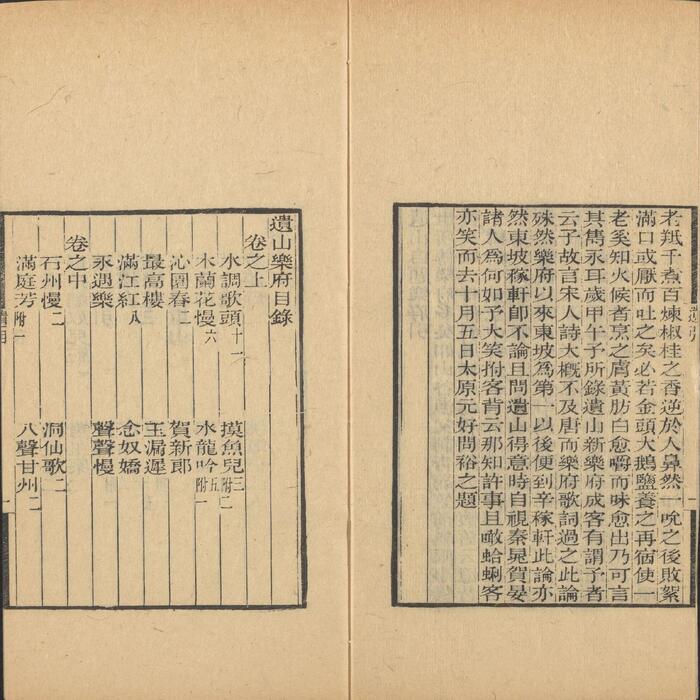 老羝千煮百煉椒桂之香逆於人鼻然一吮之後敗絮
滿口或厭而吐之矣必若金頭大鵝鹽養之再宿使一
老奚知火候者烹之膚黃肪白愈嚼而味愈出乃可言
其雋永耳歲甲午予所錄遺山新樂府成客有謂予者
云子故言宋人詩大概不及唐而樂府歌詞過之此論
殊然樂府以來東坡為第一以後便到辛稼軒此論亦
然東坡稼軒即不論且問遺山得意時自視秦晁賀晏
諸人為何如予大笑拊客背云那知許事且噉蛤蜊客
亦笑而去十月五日太原元好問裕之題
遺引
一
遺山樂府目錄
卷之上
水調歌頭十一 摸魚兒三附二
木蘭花慢六 水龍吟五附一
沁園春二 賀新郎
最高樓 玉漏遲
滿江紅八 念奴嬌
永遇樂 聲聲慢
卷之中
石州慢二 洞仙歌二
滿庭芳附一 八聲甘州二
遺目
一